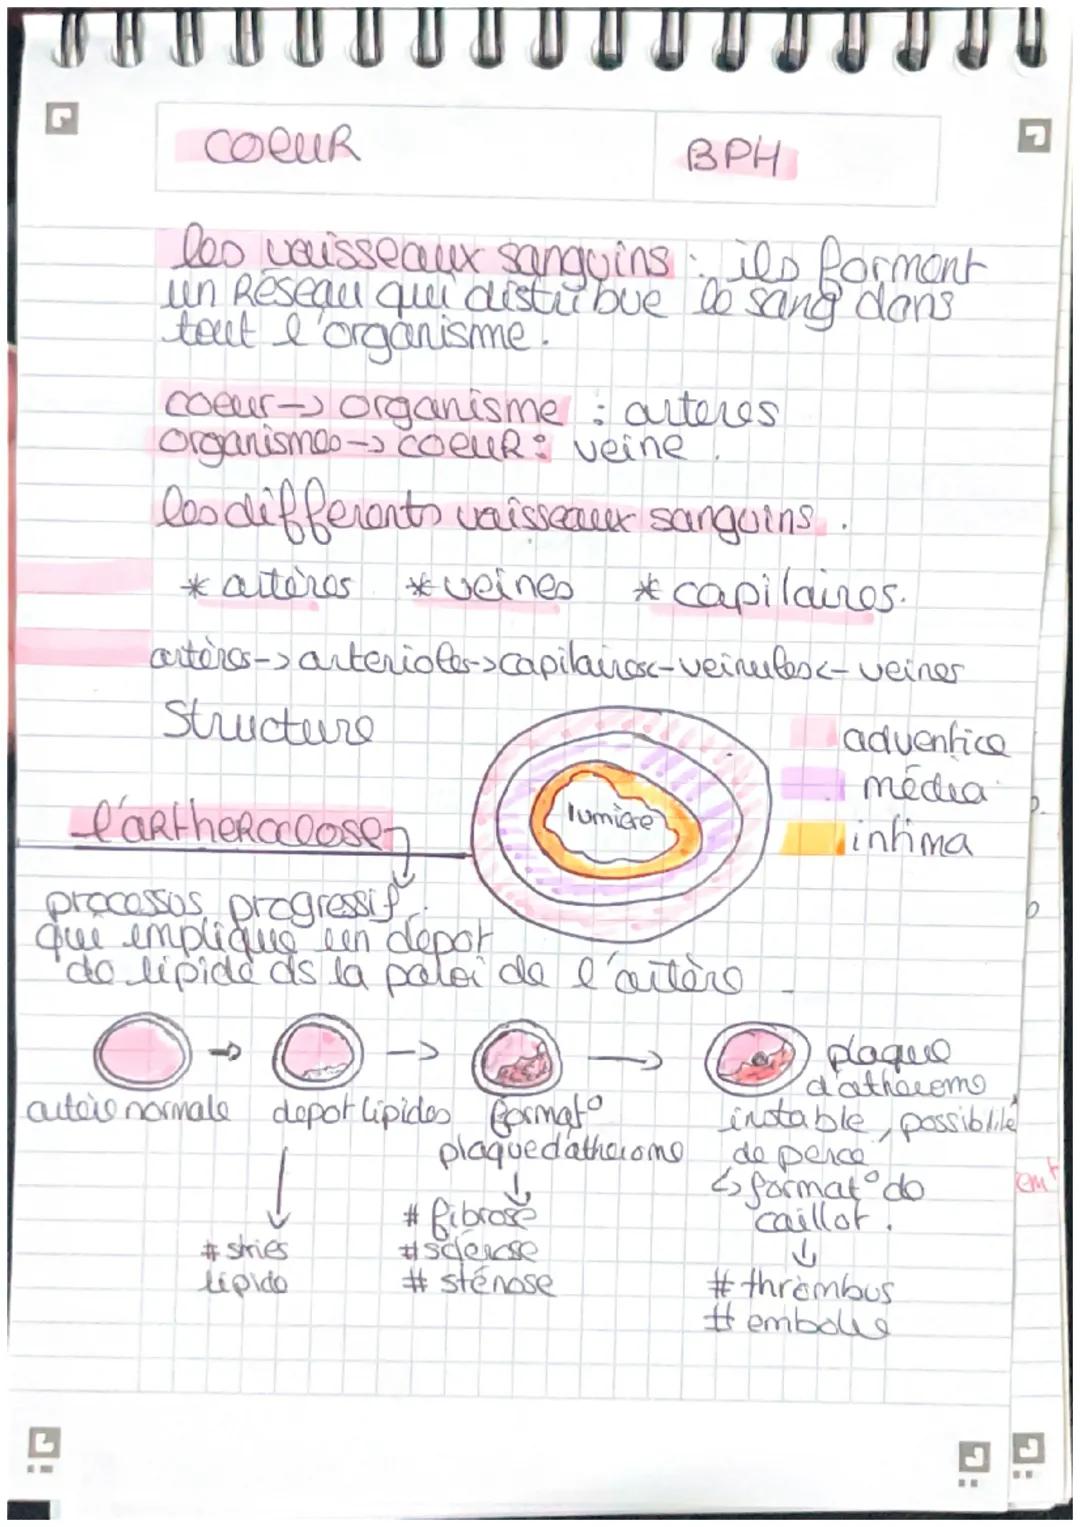 COEUR
BPH
les vaisseaux sanguins : ils forment
un Réseau qui distribue le sang dans
tout l'organisme.
coeur -> organisme : arteres
organismes -> COEUR : veine.
les differents vaisseaux sanguins.
* artères * veines * capilaires.
artères -> arterioles -> capilaires <- veinules <- veines
Structure
lumière
adventice
média
intima
l'artherosclose
processus progressif
qui implique un dépot
de lipide ds la paroi de l'artère
artère normale
depot lipides
format°
plaque d'atherome
plaque
d'atherome
instable, possibilité
de perce
↳ format° de
caillot.
# stries
lipide
# fibrose
# sclérose
# sténose
# thrombus
# embolie
emt